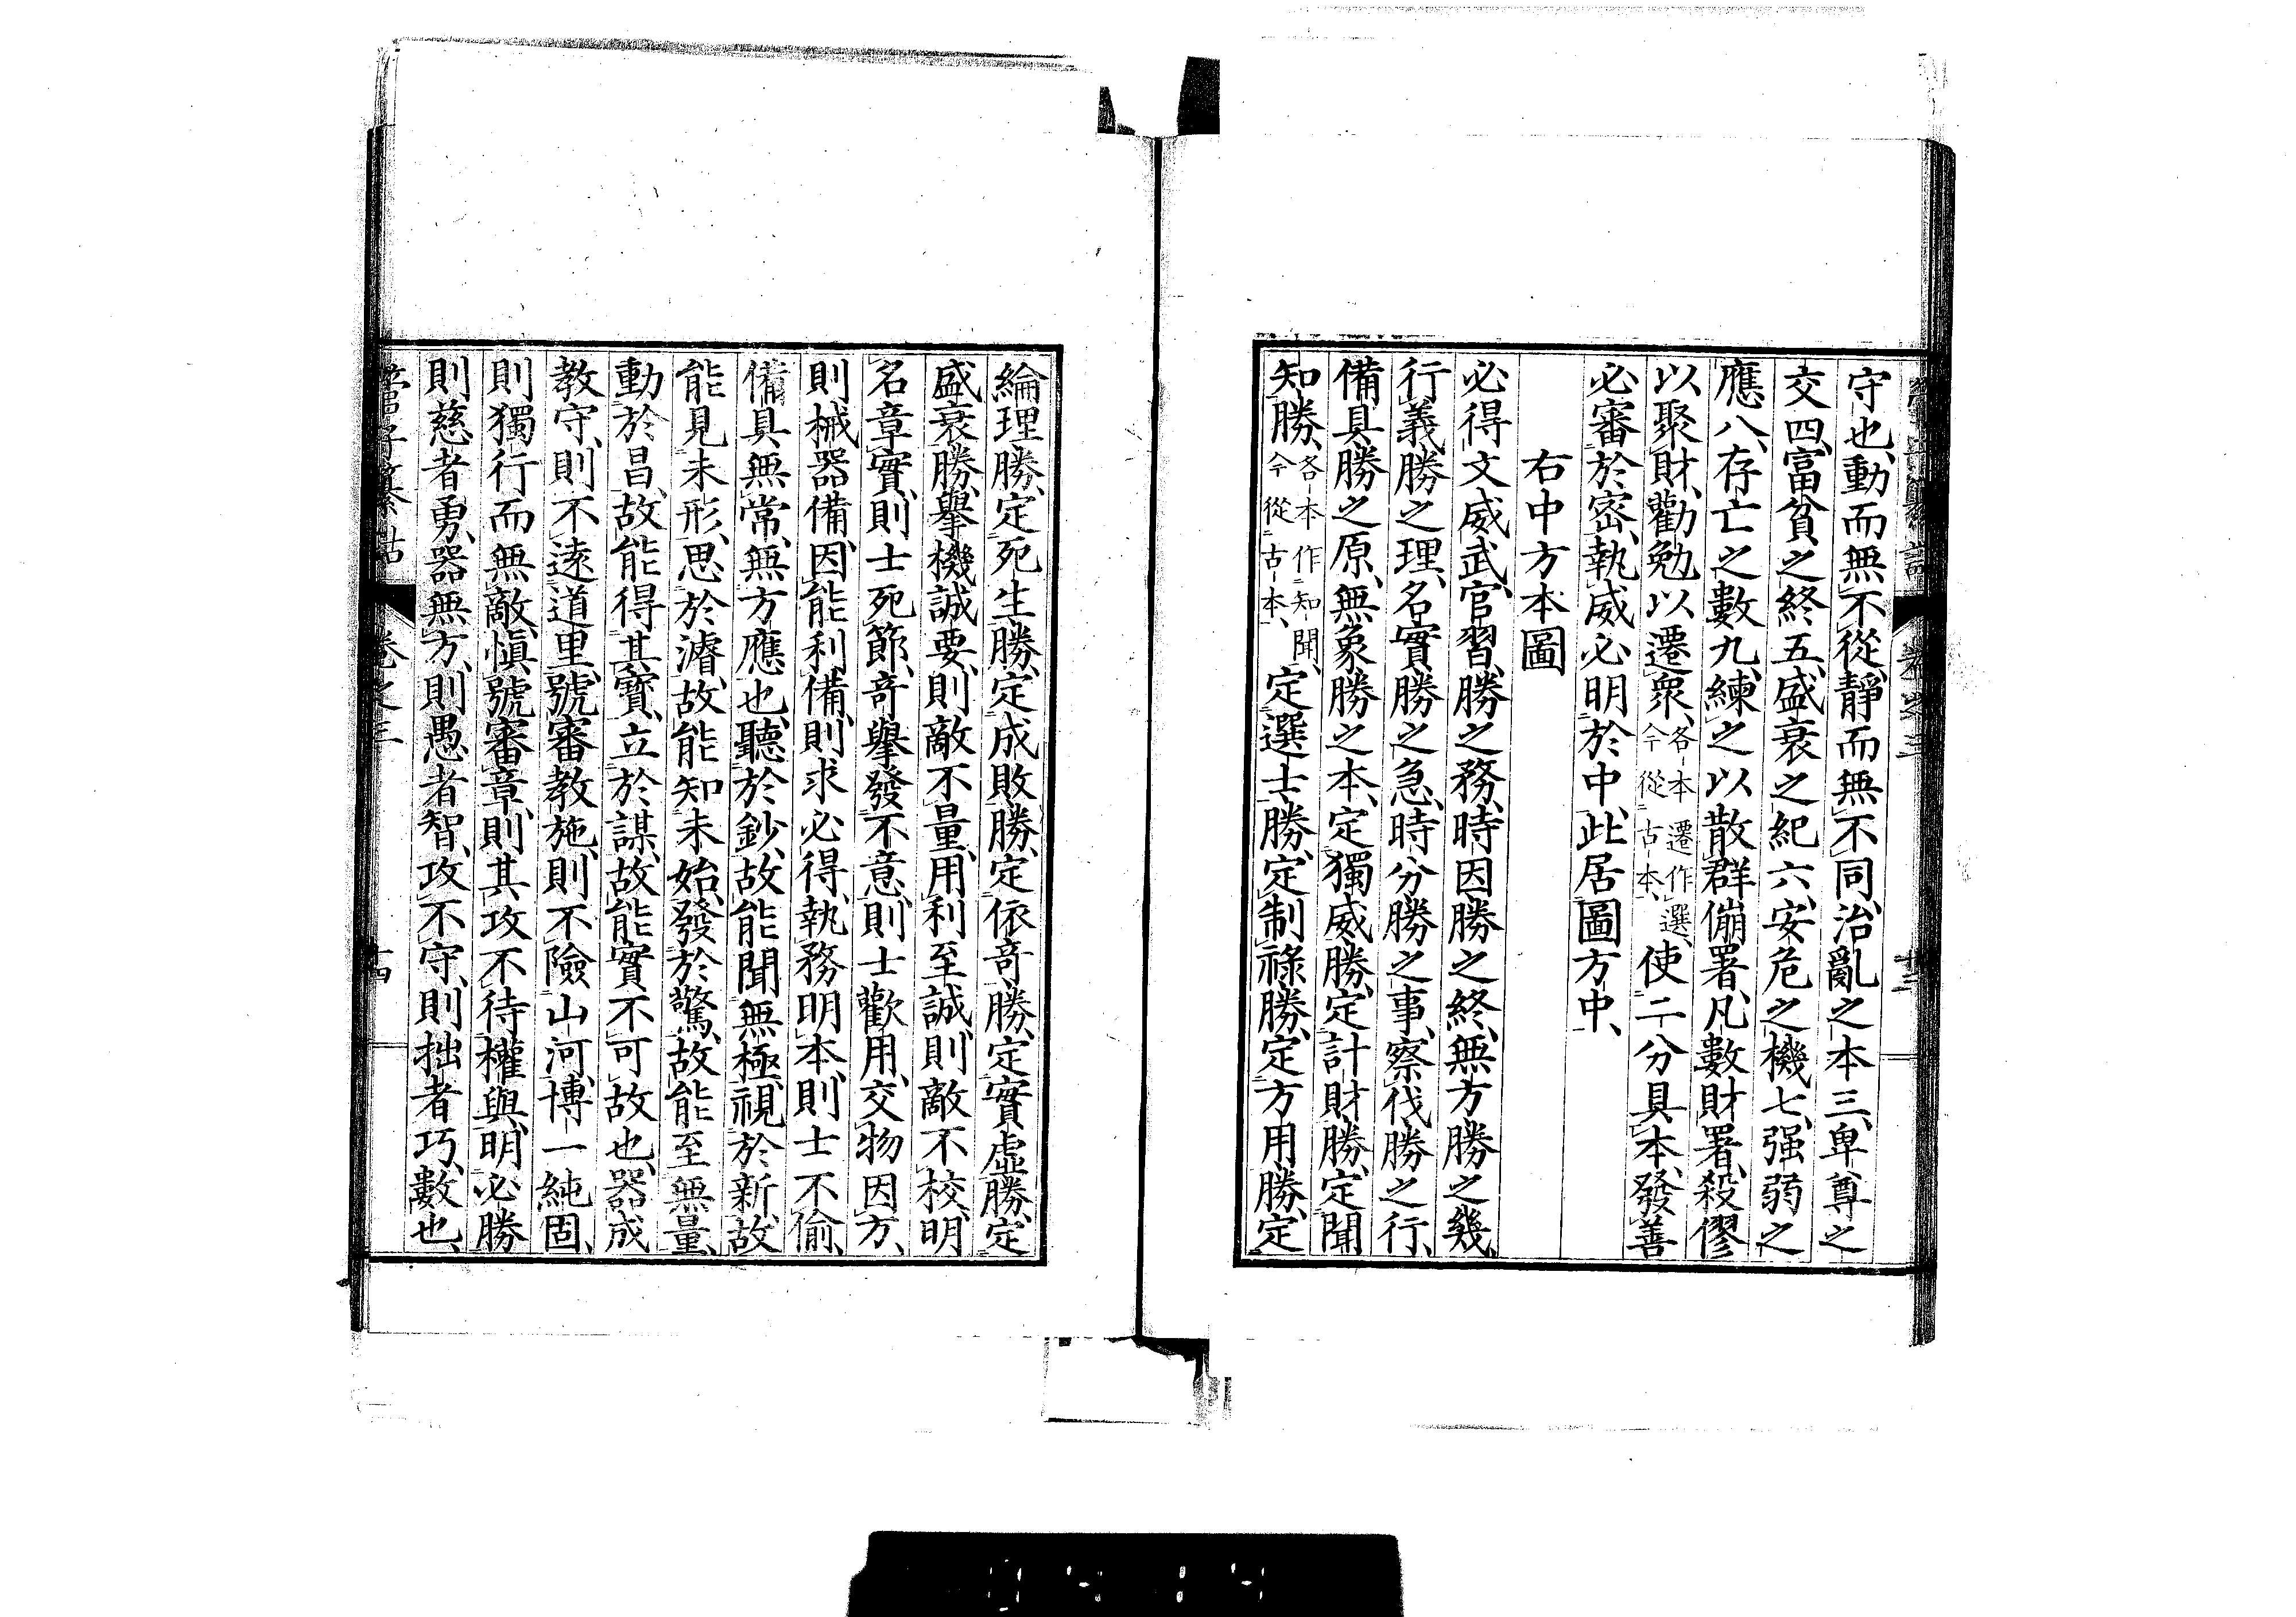 守也、動而無不從、靜而無不同、治亂之本三、卑尊之
交四、富貧之終五、盛衰之紀六、安危之機七、强弱之
應八、存亡之數九、練之以散群傰署、凡數財署、殺僇
以聚財、勸勉以遷衆、各本遷作選、今從古本、使二分具本、發善
必審於密、執威必明於中、此居圖方中、
右中方本圖
必得文威武、官習勝之務、時因勝之終、無方勝之幾、
行義勝之理、名實勝之急、時分勝之事、察伐勝之行、
備具勝之原、無象勝之本、定獨威勝、定計財勝、定聞
知勝、各本作知聞、今從古本、定選士勝、定制祿勝、定方用勝、定
綸理勝、定死生勝、定成敗勝、定依奇勝、定實虛勝、定
盛衰勝、擧機誠要、則敵不量、用利至誠、則敵不校、明
名章實、則士死節、奇擧發不意、則士歡用、交物因方、
則械器備、因能利備、則求必得、執務明本、則士不偷、
備具無常、無方應也、聽於鈔、故能聞無極、視於新、故
能見未形、思於濬、故能知未始、發於驚、故能至無量、
動於昌、故能得其寶、立於謀、故能實不可故也、器成
教守、則不遠道里、號審教施、則不險山河、博一純固、
則獨行而無敵、愼號審章、則其攻不待權與、明必勝
則慈者勇、器無方、則愚者智、攻不守、則拙者巧、數也、
管子纂詁 卷之三 十四